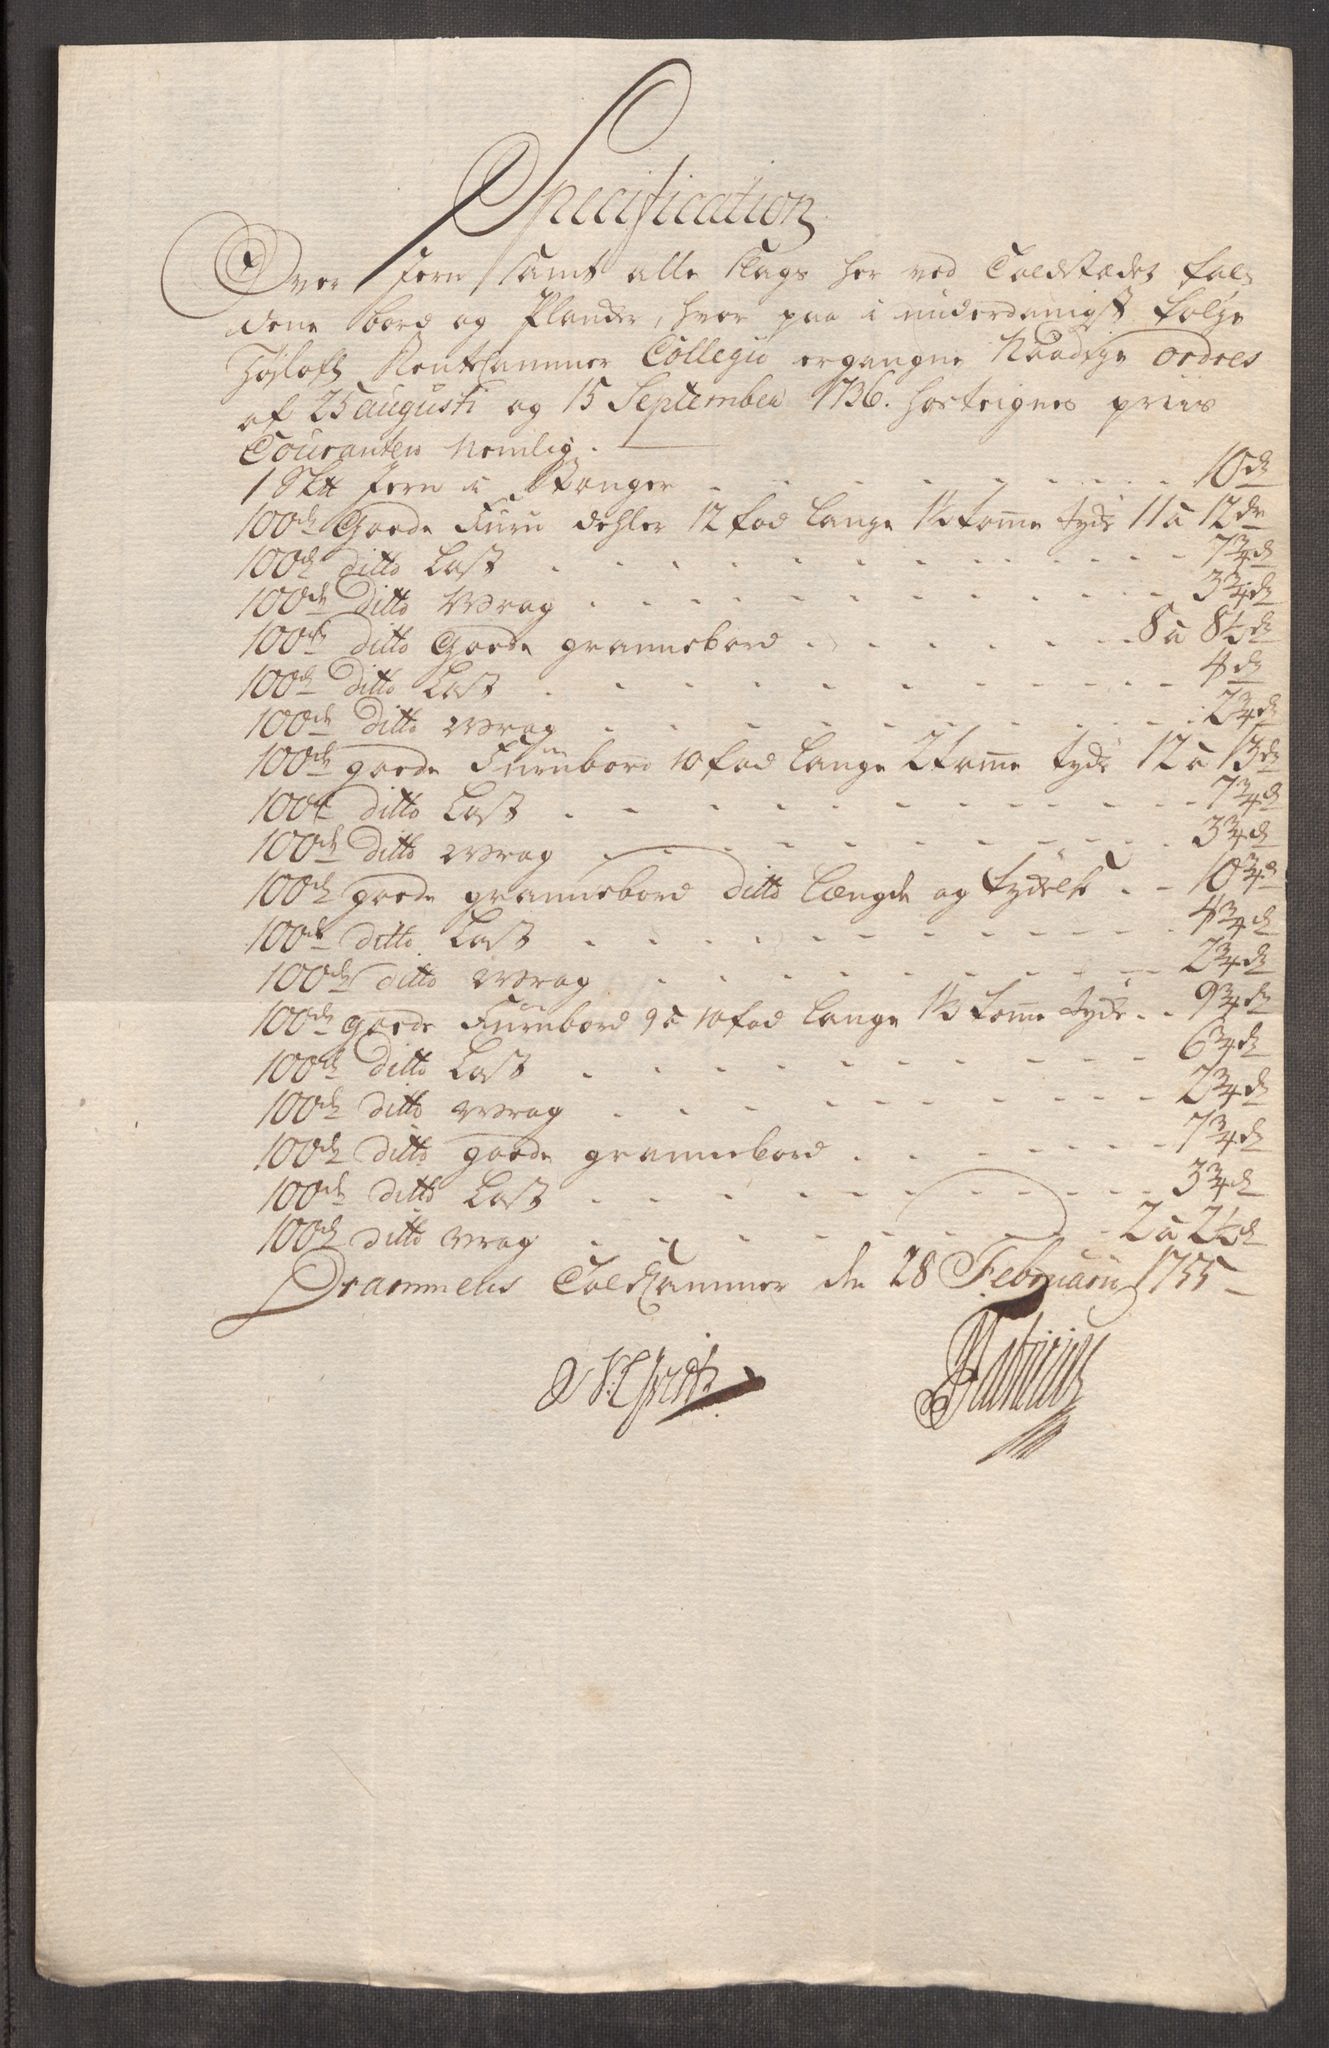 Specification
Over Jern samt alle slags her ved Toldstædet fal-
dene bord og Plancker, hvor paa i underdanigst følge
Høylofl. Rentecammer Collegii ergangne Naadige ordres
af 25 augusti og 15 September 1736. hosteignes priis
Couranten nemlig.
1 Sk℔ Jern i Stanger 10 dr
100de Goede Furu dehler 12 fod lange 1½ tomme tyde 11 a 12 dr
100de ditto Last 7¾ dr
100de ditto Wrag 3¾ dr
100de ditto Goede grannebord 8 a 8½ dr
100de ditto Last 4 dr
100de ditto Wrag 2¾ dr
100de goede Furubord 10 fod lange 2 tomme tyde 12 a 13 dr
100de ditto Last 7¾ dr
100de ditto Wrag 3¾ dr
100de goede grannebord ditto længde og tydelse 10¾ dr
100de ditto Last 4¾ dr
100de ditto Wrag 2¾ dr
100de goede Furubord 9 a 10 fod lange 1½ tomme tyde 9¾ dr
100de ditto Last 6¾ dr
100de ditto Wrag 2¾ dr
100de ditto goede grannebord 7¾ dr
100de ditto Last 3¾ dr
100de ditto Wrag 2 a 2½ dr
Drammens Toldcammer den 28 Februarii 1755